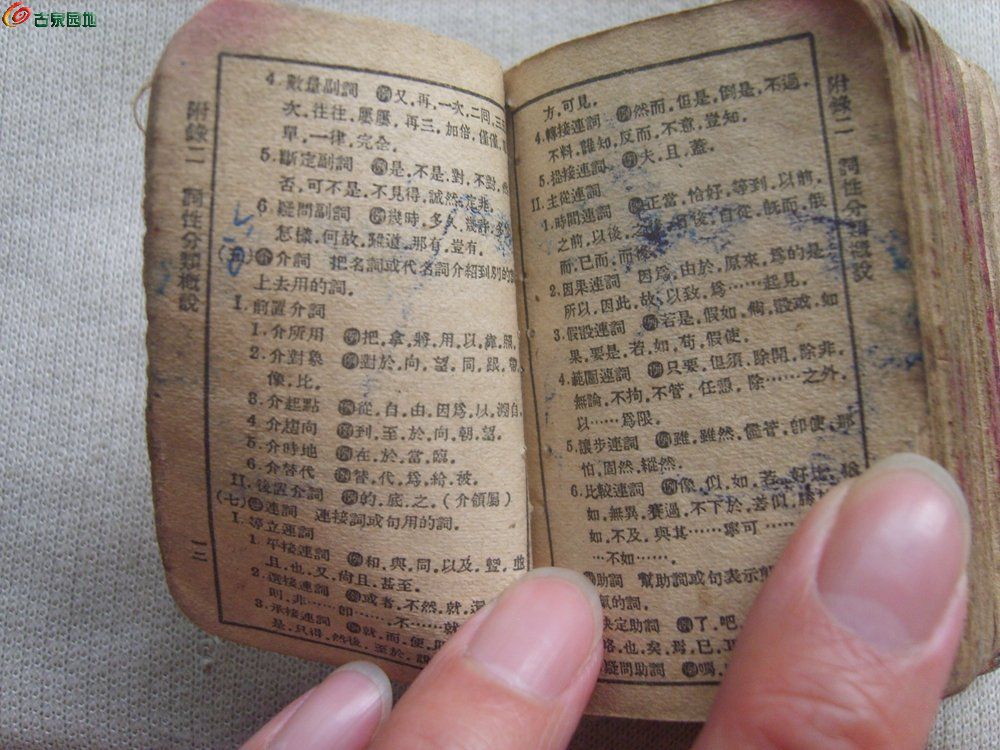 古泉园地
附錄二 詞性分類概說
一二
4. 數量副詞 例又,再,一次,二回,三
次,往往,屢屢,再三,加倍,僅僅,
單,一律,完全.
5. 斷定副詞 例是,不是,對,不對,
否,可不是,不見得,誠然,定非.
6. 疑問副詞 例幾時,多久,幾許,多
怎樣,何故,難道,那有,豈有.
介詞 把名詞或代名詞介紹到別的
上去用的詞.
I. 前置介詞
1. 介所用 例把,拿,將,用,以,
2. 介對象 例對於,向,望,同,跟,
像,比.
3. 介起點 例從,自,由,因爲,以,
4. 介趨向 例到,至,於,向,朝,望.
5. 介時地 例在,於,當,臨.
6. 介替代 例替,代,爲,給,被.
II. 後置介詞 例的,底,之.(介領屬)
(七) 連詞 連接詞或句用的詞.
I. 等立連詞
1. 平接連詞 例和,與,同,以及,
且,也,又,尚且,甚至.
2. 選接連詞 例或者,不然,就,還
則,非……卽……,不……就
3. 承接連詞 例就,而,便,
是,只得,然後,至於,說
附錄二 詞性分類概說
方,可見.
4. 轉接連詞 例然而,但是,倒是,不過,
不料,誰知,反而,不意,豈知.
5. 提接連詞 例夫,且,蓋.
II. 主從連詞
1. 時間連詞 例正當,恰好,等到,以前,
之前,以後,之後,而後,自從,旣而,俄
而,已而,而後
2. 因果連詞 因爲,由於,原來,爲的是
所以,因此,故,以致,爲……起見.
3. 假設連詞 例若是,假如,倘,設或,如
果,要是,若,如,苟,假使.
4. 範圍連詞 例只要,但須,除開,除非,
無論,不拘,不管,任憑,除……之外,
以……爲限.
5. 讓步連詞 例雖,雖然,儘管,卽使,那
怕,固然,縱然.
6. 比較連詞 例像,似,如,若,好比,
如,無異,賽過,不下於,若似,
如,不及,與其……寧可……
…不如……
助詞 幫助詞或句表示
氣的詞.
決定助詞 例了,吧,
咯,也,矣,焉,已,
疑問助詞 例嗎,